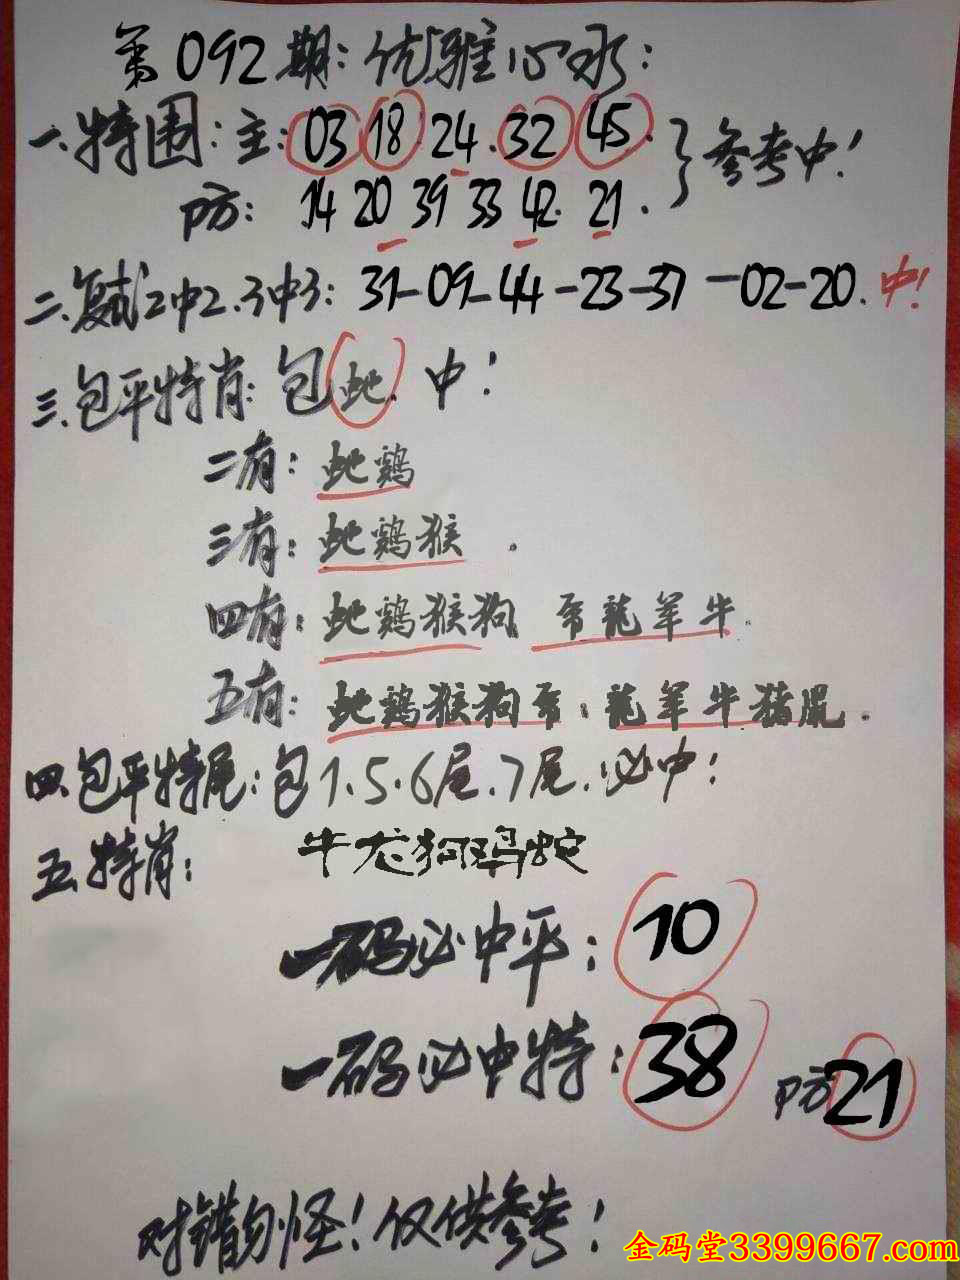 第092期：优雅心水：
一.特围：主：03 18 24.32 45.
防：14 20 39 33 42.21.
参考中！
二.复式2中2.3中3：31-09-44-23-37-02-20.中！
三.包平特肖：包蛇.中！
二有：蛇鸡
三有：蛇鸡猴.
四有：蛇鸡猴狗 龍羊牛.
五有：蛇鸡猴狗 龍羊牛猪鼠.
四.包平特尾：包1.5.6尾.7尾.必中！
五.特肖：牛龙狗鸡蛇
一码必中平：10
一码必中特：38 防21
对错勿怪！仅供参考！
金码堂3399667.com